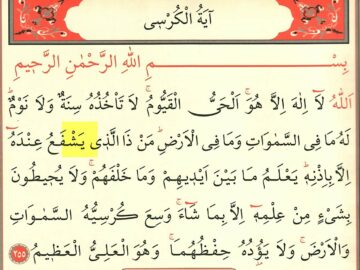 آيَةُ الْكُرْسِى
بِسْــــمِ اللهِ الرَّحْمٰنِ الرَّحِيمِ
اَللهُ لَٓا اِلٰهَ اِلَّا هُوَۚ اَلْحَىُّ الْقَيُّومُۚ لَا تَأْخُذُهُ سِنَةٌ وَلَا نَوْمٌۜ
لَهُ مَا فِى السَّمٰوَاتِ وَمَا فِى الْاَرْضِۜ مَنْ ذَا الَّذِى يَشْفَعُ عِنْدَهُٓ
اِلَّا بِاِذْنِهِۜ يَعْلَمُ مَا بَيْنَ اَيْدِيهِمْ وَمَا خَلْفَهُمْۚ وَلَا يُحِيطُونَ
بِشَىْءٍ مِنْ عِلْمِهِٓ اِلَّا بِمَا شَٓاءَۚ وَسِعَ كُرْسِيُّهُ السَّمٰوَاتِ
وَالْاَرْضَۚ وَلَا يَؤُدُهُ حِفْظُهُمَاۚ وَهُوَ الْعَلِىُّ الْعَظِيمُ ٢٥٥